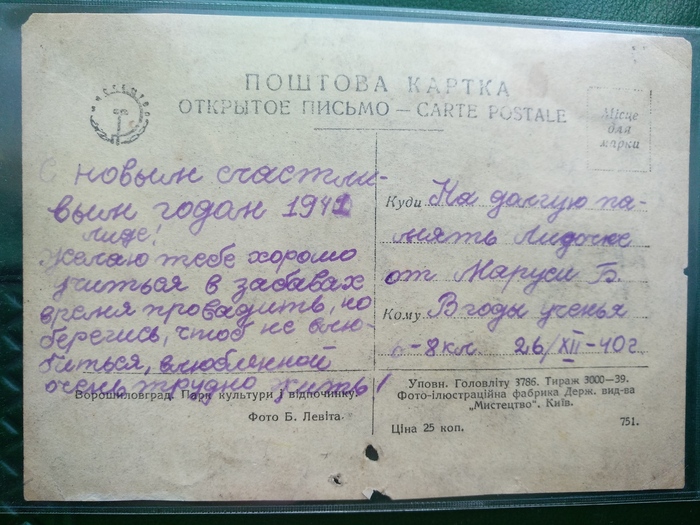 МИСТЕЦТВО
ПОШТОВА КАРТКА
ОТКРЫТОЕ ПИСЬМО — CARTE POSTALE
Місце
для
марки
С новым счастли-
вым годом 1941
Лиде!
Желаю тебе хорошо
учиться в забавах
время провадить, но
берегись, чтоб не влю-
биться, влюбленной
очень трудно жить!
Ворошиловград. Парк культури і відпочинку.
Фото Б. Левіта.
Куди На долгую па-
мять Лидочке
от Маруси Б.
Кому В годы ученья
8 кл. 26/XII-40 г.
Уповн. Головліту 3786. Тираж 3000—39.
Фото-ілюстраційна фабрика Держ. вид-ва
„Мистецтво", Київ.
Ціна 25 коп. 751.